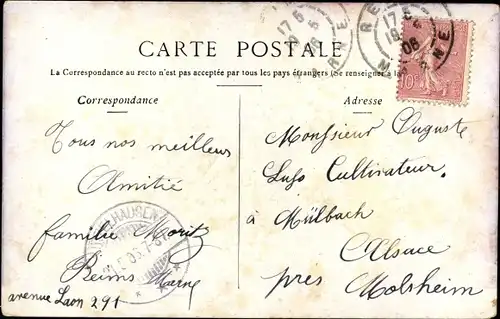 CARTE POSTALE
La Correspondance au recto n'est pas acceptée par tous les pays étrangers (Se renseigner à la
Correspondance
Tous nos meilleurs
Amitié
familie Moritz
Reims Marne
avenue Laon 291
Adresse
Monsieur Auguste
Cultivateur
à Mülbach
Alsace
près Molsheim
17 5
06
RNE
RE
17 5
06
NE
10
HAUSEN